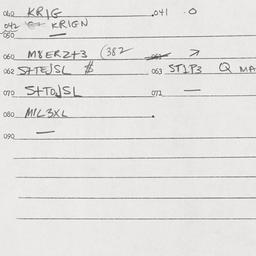 040 KRIG 041 0
042 KRIGN
050 —
060 M8ERZ+3 (382
062 S+TEJSL $ 063 ST1P3 Q MA
070 S+TOJSL 071 —
080 MIL3XL
090 —